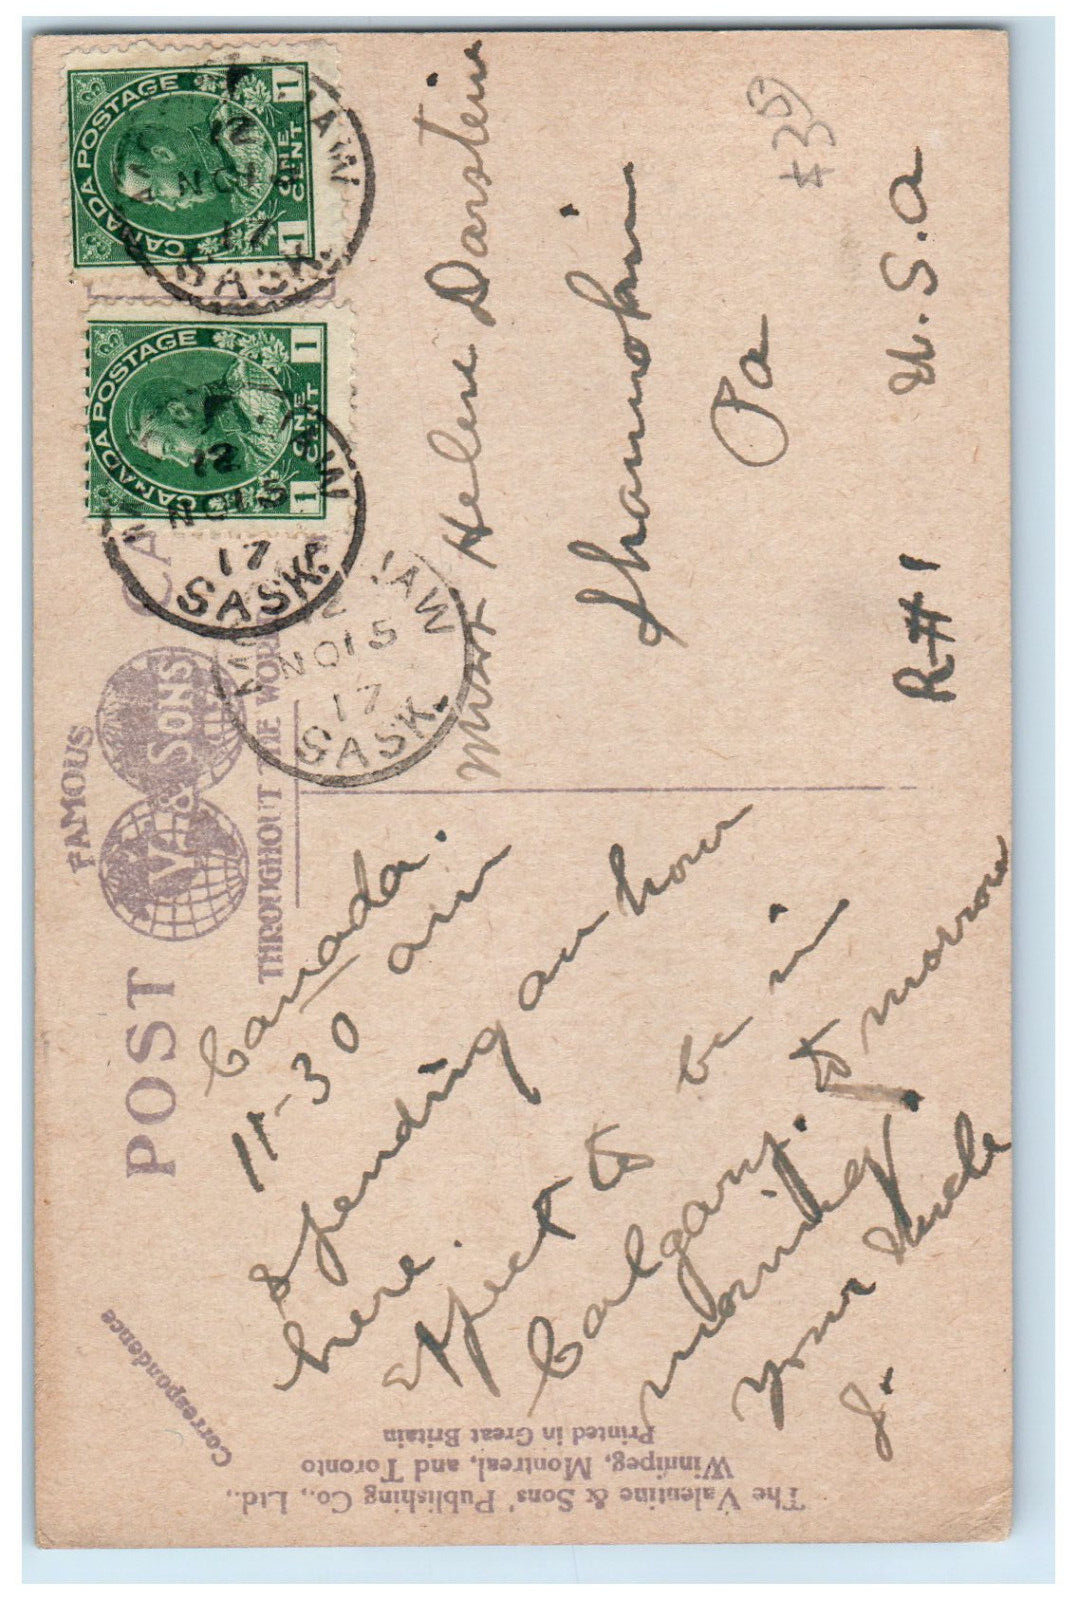 POST CA
FAMOUS
V. & SONS
THROUGHOUT THE WOR
Correspondence
Canada.
11-30 am
Spending an hour
here.
expect to be in
Calgary. to morrow
morning.
your Uncle
J.
Miss Helen Darstein
Shamokin
Pa
R#1
U.S.A
CANADA POSTAGE
1 ONE CENT 1
CANADA POSTAGE
1 ONE CENT 1
JAW
12
NO 15
17
SASK.
JAW
12
NO 15
17
SASK.
MO JAW
12
NO 15
17
SASK.
The Valentine & Sons' Publishing Co., Ltd.,
Winnipeg, Montreal, and Toronto
Printed in Great Britain